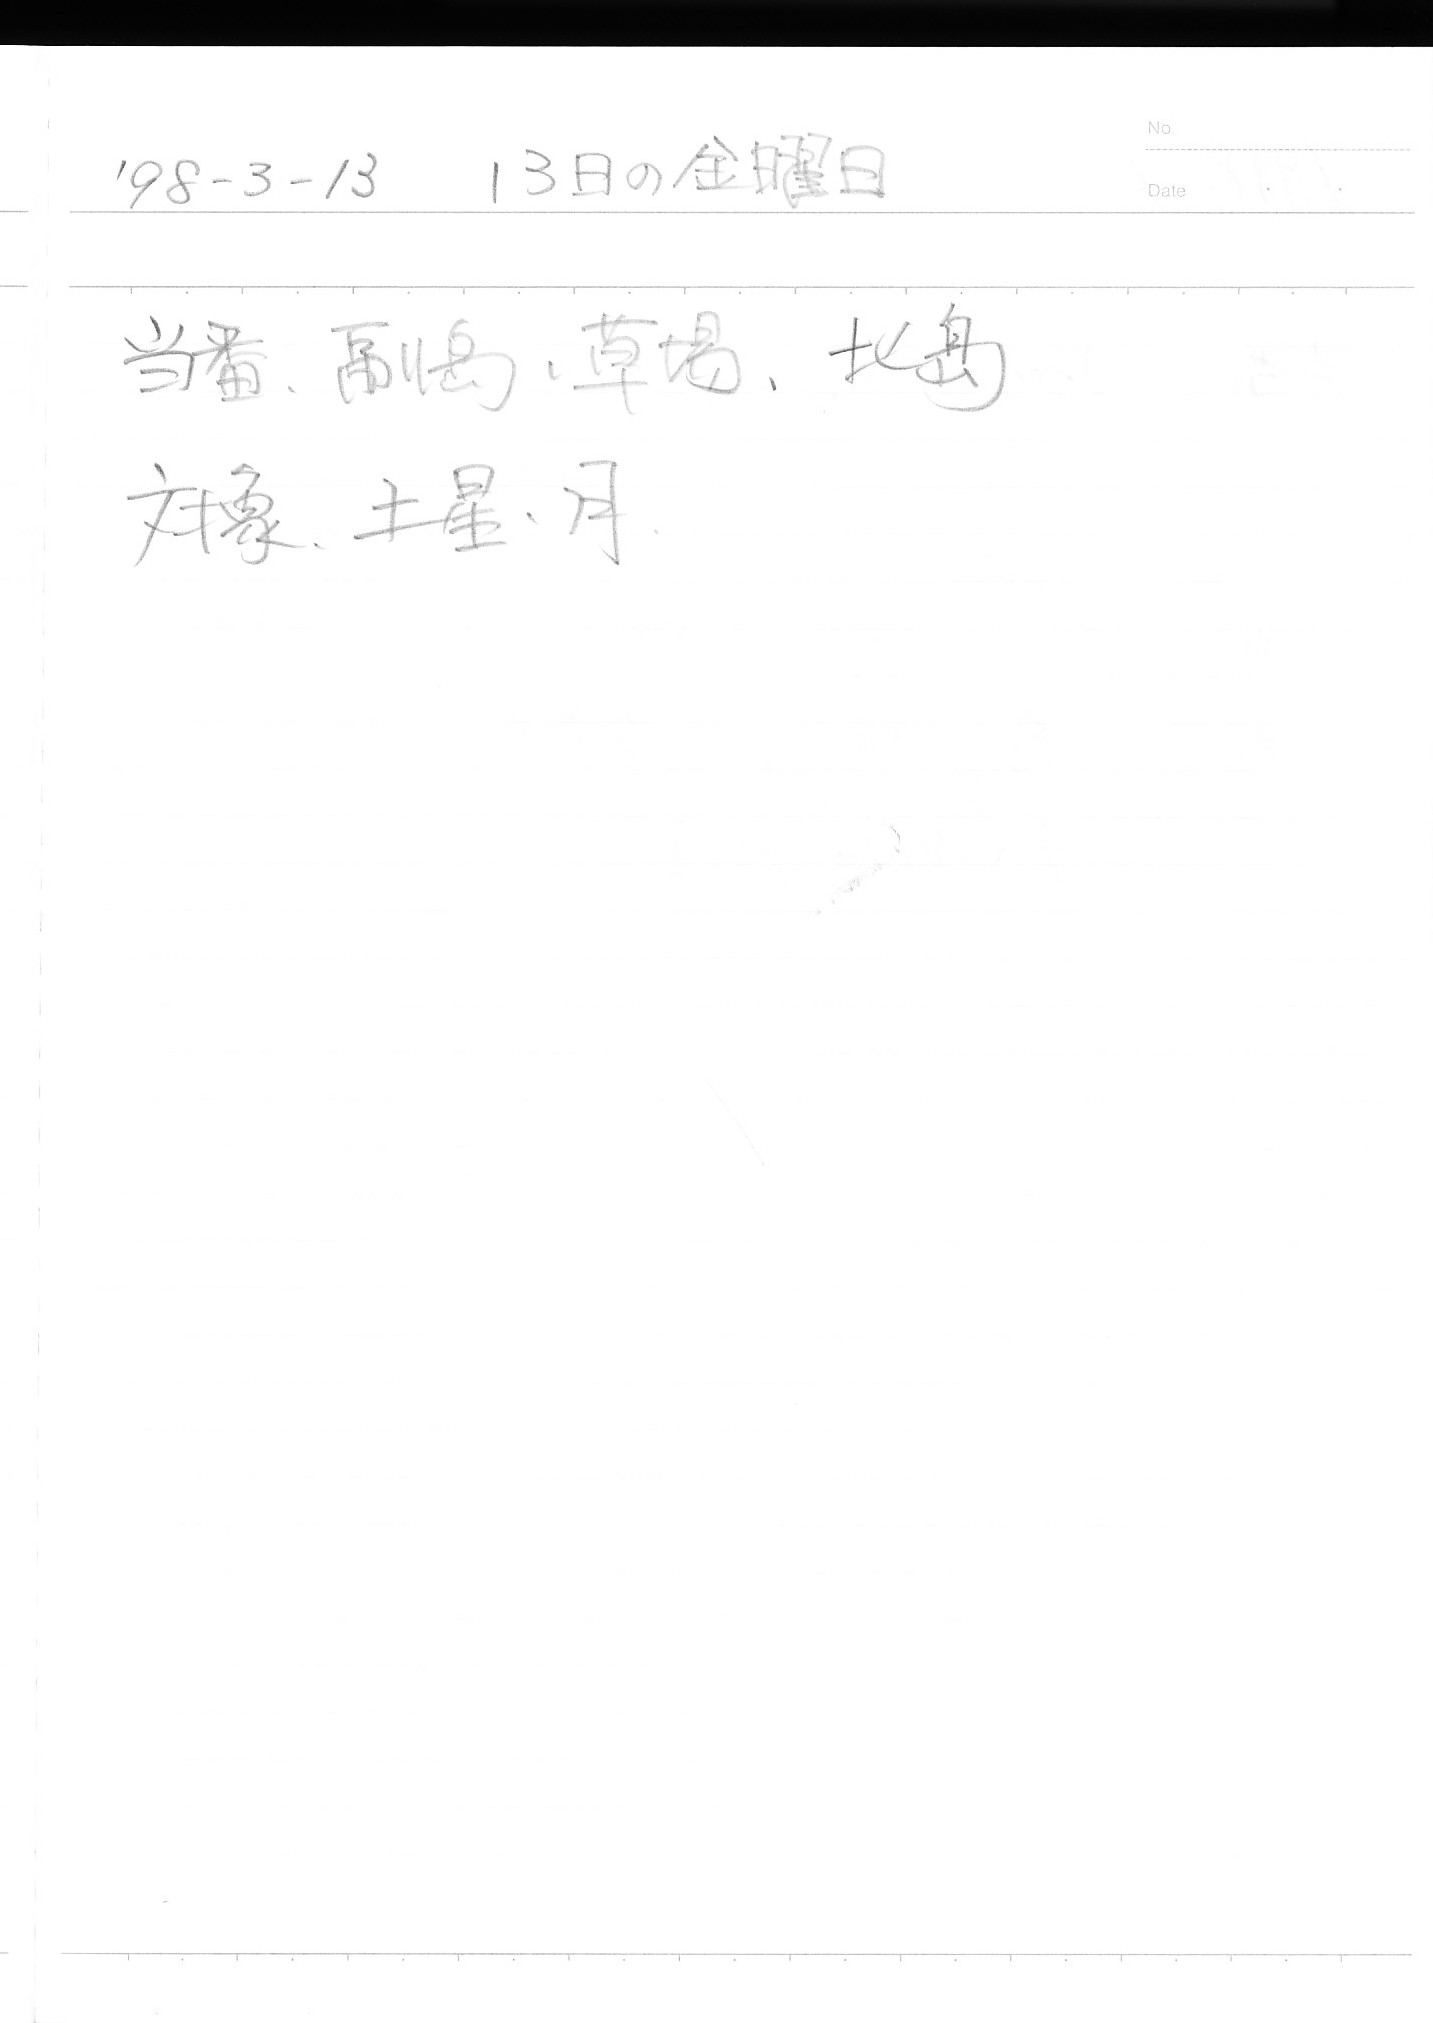 No.
Date
'98-3-13 13日の金曜日
当番、副島、草場、北島
対象、土星、月.